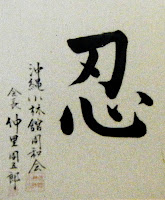 忍
沖縄小林舘同社会
会長仲里周五郎